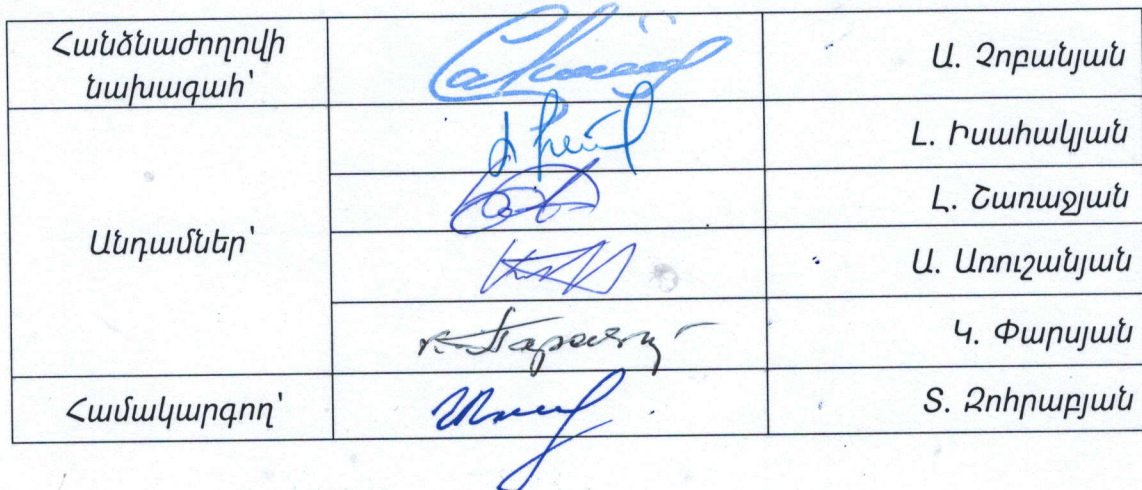 Հանձնաժողովի
նախագահ՝
Ա. Չոբանյան
Լ. Իսահակյան
Անդամներ՝
Լ. Շառաջյան
Ա. Առուշանյան
Կ. Փարսյան
Համակարգող՝
Տ. Զոհրաբյան